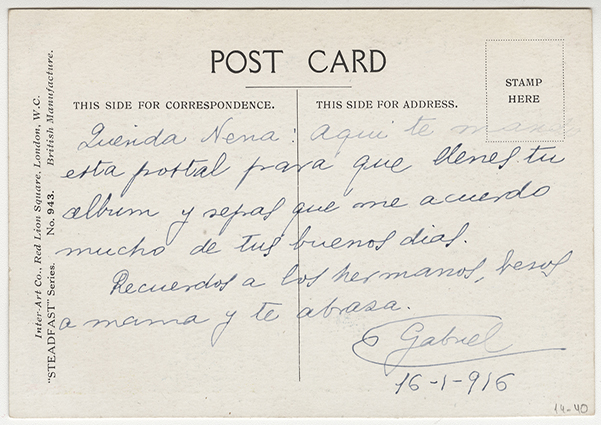 POST CARD
THIS SIDE FOR CORRESPONDENCE.
THIS SIDE FOR ADDRESS.
STAMP
HERE
Inter-Art Co., Red Lion Square, London, W.C.
"STEADFAST" Series. No. 943. British Manufacture.
Querida Nena: aqui te mando
esta postal para que llenes tu
album y sepas que me acuerdo
mucho de tus buenos dias.
Recuerdos a los hermanos, besos
a mama y te abraza.
Gabriel
16-1-916
14-40